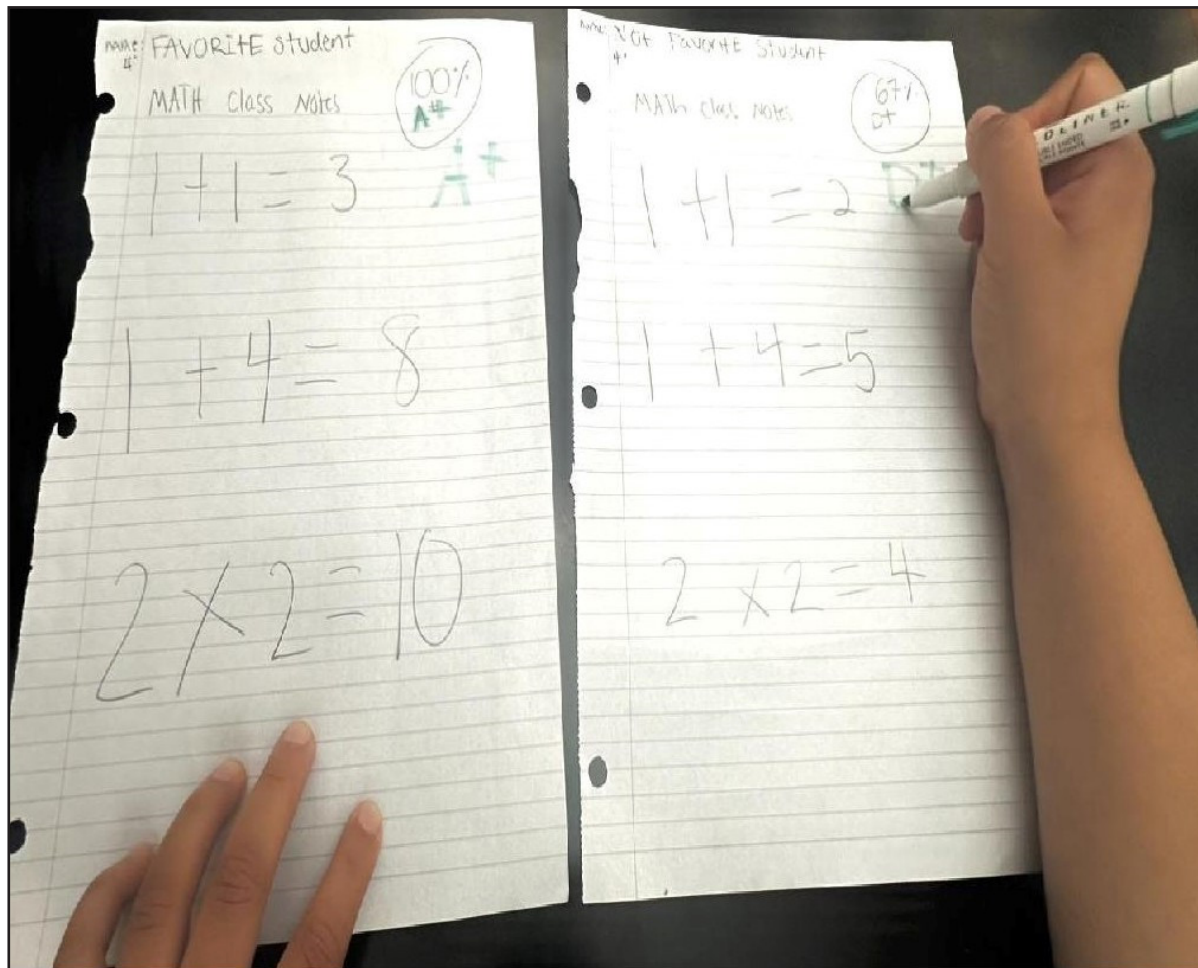 name: FAVORITE student
4'
MATH Class Notes
100%
A++
A+
1+1=3
1+4=8
2x2=10
name: Not Favorite Student
4'
MATh class Notes
67%
D+
D+
1+1=2
1+4=5
2x2=4